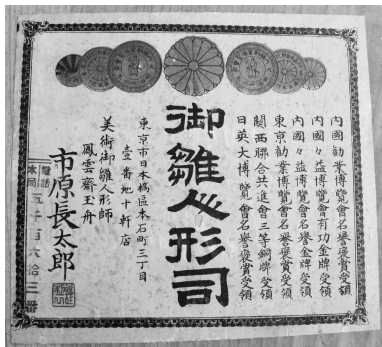 内國勸業博覽會名譽褒賞受領
内國々益博覽會有功金牌受領
内國々益博覽會名譽金牌受領
東京勸業博覽會名譽褒賞受領
関西聯合共進會三等銅牌受領
日英大博覽會名譽褒賞受領
御雛人形司
東京市日本橋區本石町三丁目
壹番地十軒店
美術御雛人形師
鳳雲齋玉舟
市原長太郎
電話本局
五千百六拾三番